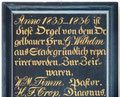 Anno 1855-1856 ist
diese Orgel von dem Or
gelbauer Hrn G. Wilhelm
aus Stade gründlich repa
riert worden. Zur Zeit
waren.
Timm, Pastor.
H. F. Crop, Diaconus.